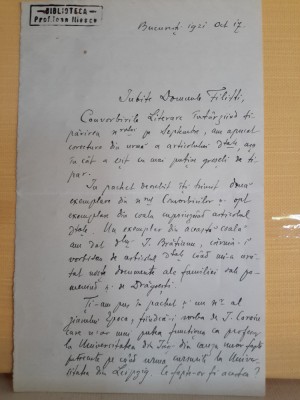 BIBLIOTECA
Prof. Ioan Iliescu
București 1921 Oct 17.
Iubite Domnule Filitti,
Convorbirile Literare întârziind ti-
părirea pe Septembre, am
corectura din urmă a articolului dtale
încât a eșit cu mai puține greșeli de ti-
par.
În pachet deosebit îți trimit doua
exemplare din Convorbirilor și opt
exemplare din coala cuprinzând articolul
dtale. Un exemplar din această coală
am dat dlui I. Brătianu, căruia
vorbisem de articolul dtale când mi-a ară-
tat niște documente ale familiei sale po-
menind și de Drăgești.
Ți-am pus în pachet și un nr. al
ziarului Epoca, fiindcă-i vorba de I.
care n-ar mai putea funcționa ca profesor
la Universitatea din Iași din cauza unor fapte
petrecute pe când urma cursurile la Univer-
sitatea din Leipzig. Ce fapte-or fi acestea?